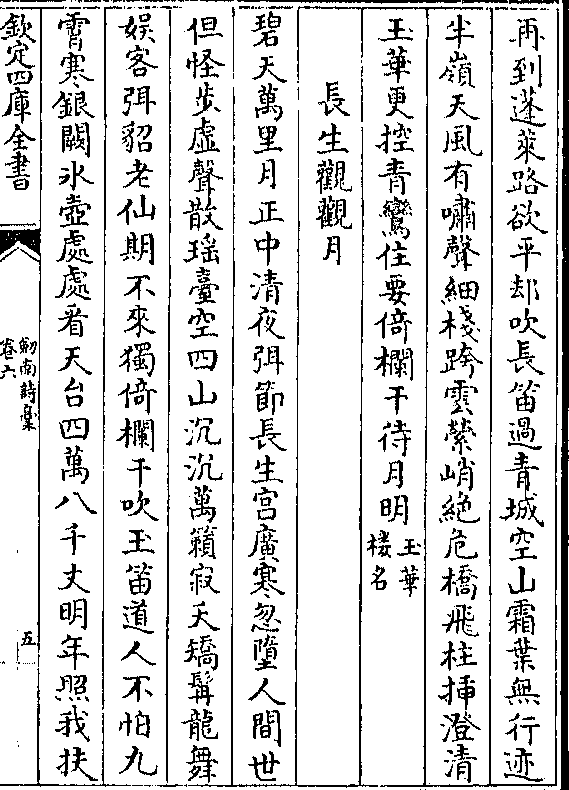 再到蓬萊路欲平却吹長笛過青城空山霜葉無行迹
半嶺天風有嘯聲細棧跨雲縈峭絶危橋飛柱揷澄清
玉華更控青鸞住要倚欄干待月明玉華
楼名
長生觀觀月
碧天萬里月正中清夜弭節長生宫廣寒忽墮人間世
但怪步虛聲散瑶臺空四山沉沉萬籟寂夭矯髯龍舞
娱客弭貂老仙期不來獨倚欄干吹玉笛道人不怕九
霄寒銀闕氷壺處處看天台四萬八千丈明年照我扶
欽定四庫全書
劒南詩稾
卷六
五